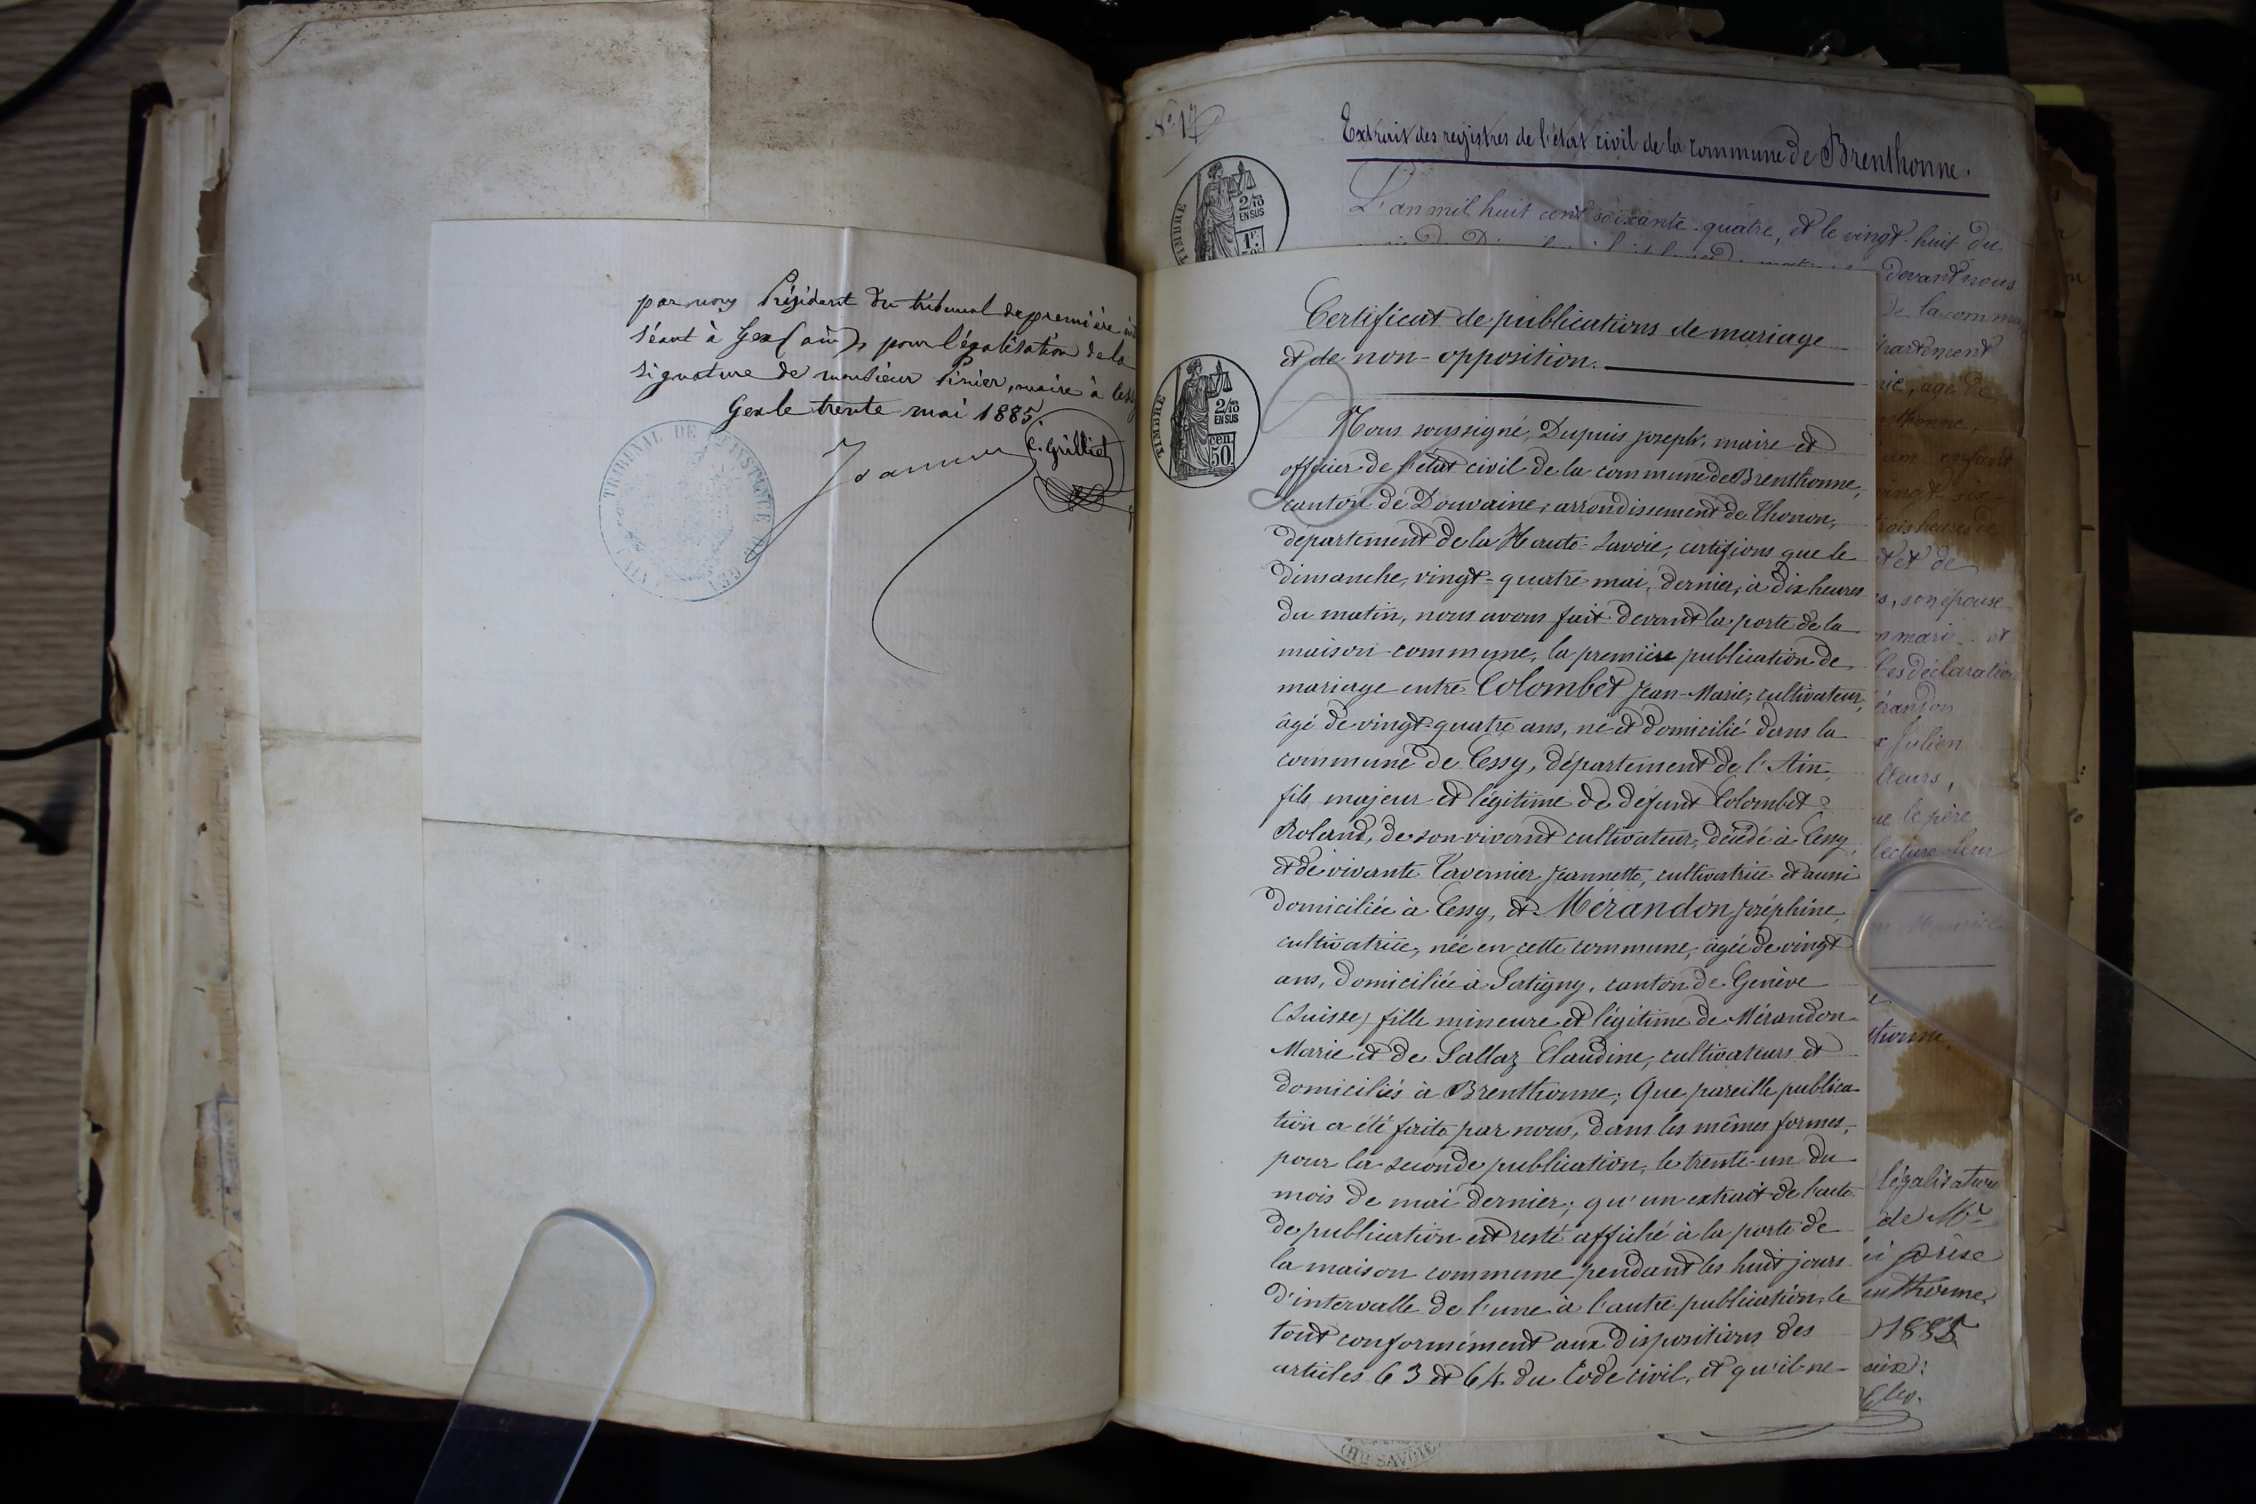 par nous Président du tribunal de première
séant à Gex (ain), pour légalisation de la
signature de monsieur Pinier, maire à Cessy
Gex le trente mai 1885
C. Grilliet
TRIBUNAL DE 1re INSTANCE
GEX
No. 17
Extrait des registres de l'état civil de la commune de Brenthonne.
TIMBRE
2/10
EN SUS
1F.
L'an mil huit cent soixante-quatre, et le vingt-huit du
devant nous
de la commune
département
âgé de
vingt-six
trois heures
et de
son épouse
mari et
déclaration
Mérandon
Julien
le père
lecture leur
légalisation
de Mr
prise
Brenthonne
1885
Hte SAVOIE
Certificat de publications de mariage
et de non-opposition.
TIMBRE
2/10
EN SUS
cen.
50
Nous soussigné, Dupuis Joseph, maire et
officier de l'état civil de la commune de Brenthonne,
canton de Douvaine, arrondissement de Thonon,
département de la Haute-Savoie, certifions que le
dimanche, vingt-quatre mai, dernier, à dix heures
du matin, nous avons fait devant la porte de la
maison commune, la première publication de
mariage entre Colombet Jean-Marie, cultivateur,
âgé de vingt-quatre ans, né et domicilié dans la
commune de Cessy, département de l'Ain,
fils majeur et légitime de défunt Colombet
Roland, de son vivant cultivateur, décédé à Cessy,
et de vivante Tavernier Jeannette, cultivatrice et aussi
domiciliée à Cessy, et Mérandon Joséphine,
cultivatrice, née en cette commune, âgée de vingt
ans, domiciliée à Satigny, canton de Genève
(Suisse) fille mineure et légitime de Mérandon
Marie et de Sallaz Claudine, cultivateurs et
domiciliés à Brenthonne; Que pareille publica-
tion a été faite par nous, dans les mêmes formes,
pour la seconde publication, le trente-un du
mois de mai dernier; qu'un extrait de l'acte
de publication est resté affiché à la porte de
la maison commune pendant les huit jours
d'intervalle de l'une à l'autre publication, le
tout conformément aux dispositions des
articles 63 et 64 du Code civil, et qu'il ne